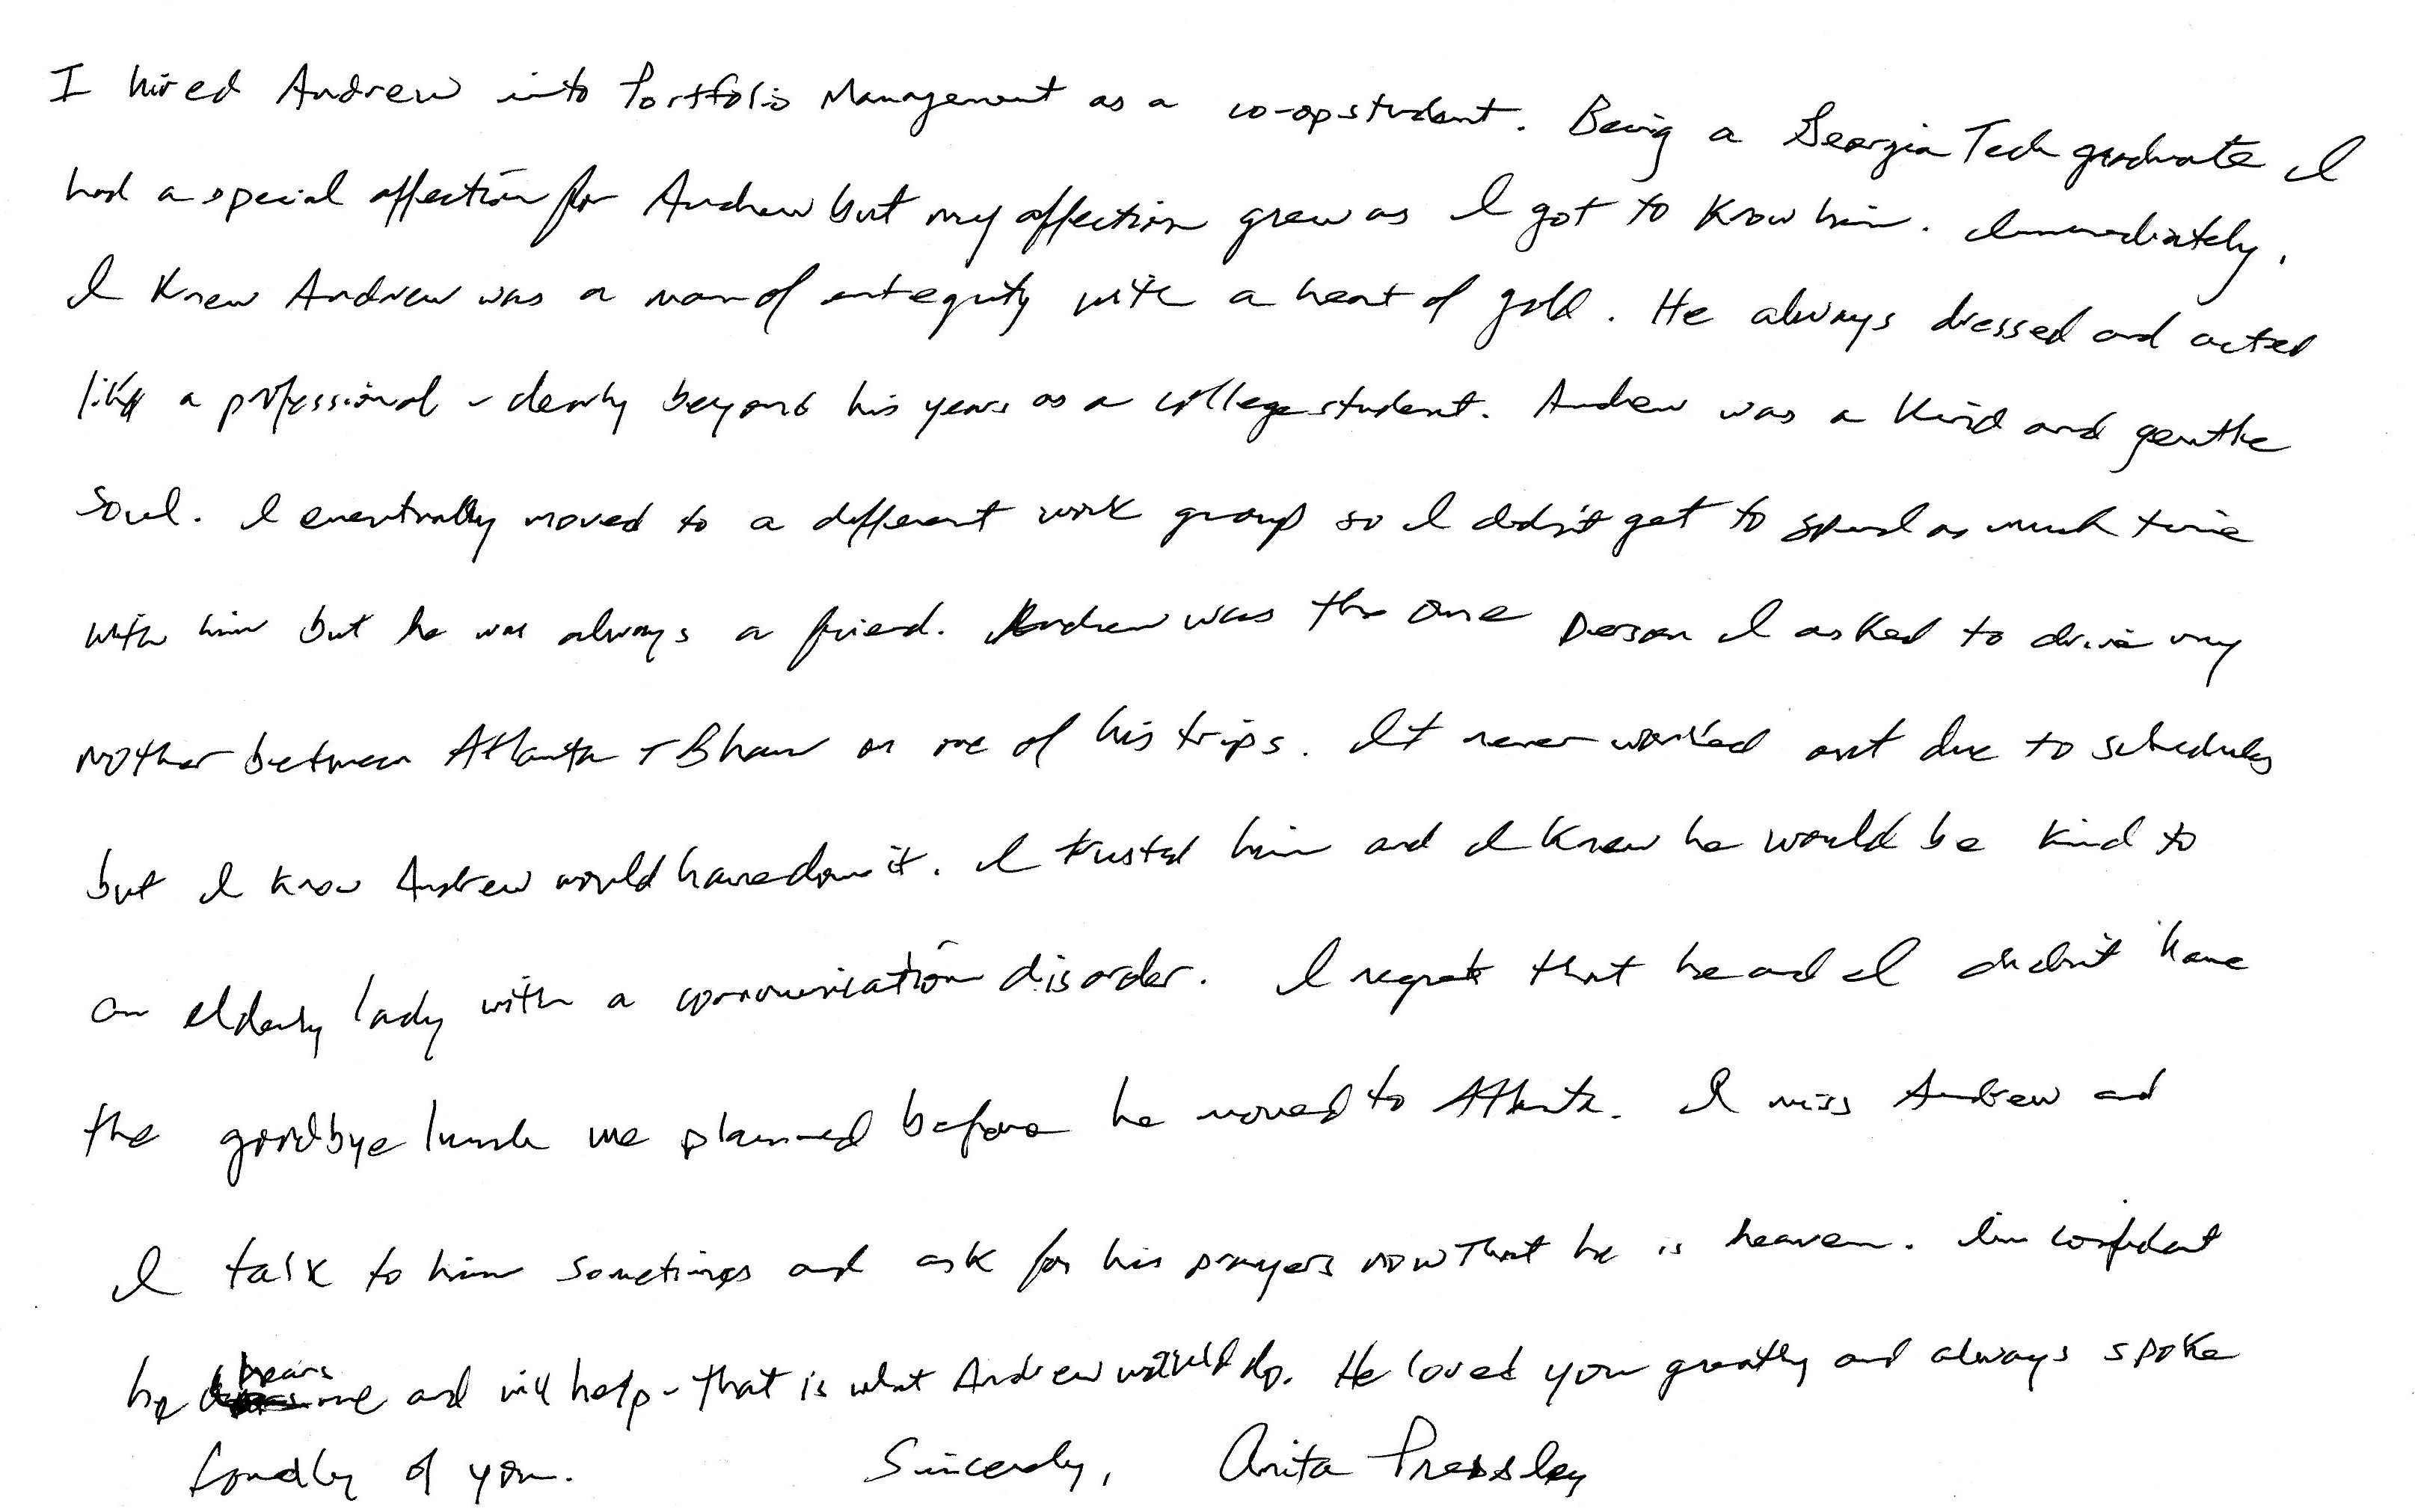 I hired Andrew into Portfolio Management as a co-op student. Being a Georgia Tech graduate I
had a special affection for Andrew but my affection grew as I got to know him. Immediately,
I knew Andrew was a man of integrity with a heart of gold. He always dressed and acted
like a professional - clearly beyond his years as a college student. Andrew was a kind and gentle
soul. I eventually moved to a different work group so I didn't get to spend as much time
with him but he was always a friend. Andrew was the one person I asked to drive my
mother between Atlanta + Bham on one of his trips. It never worked out due to schedules
but I know Andrew would have done it. I trusted him and I knew he would be kind to
an elderly lady with a communication disorder. I regret that he and I didn't have
the goodbye lunch we planned before he moved to Atlanta. I miss Andrew and
I talk to him sometimes and ask for his prayers now that he is heaven. I'm confident
he hears me and will help - that is what Andrew would do. He loved you greatly and always spoke
fondly of you. Sincerely, Anita Pressley